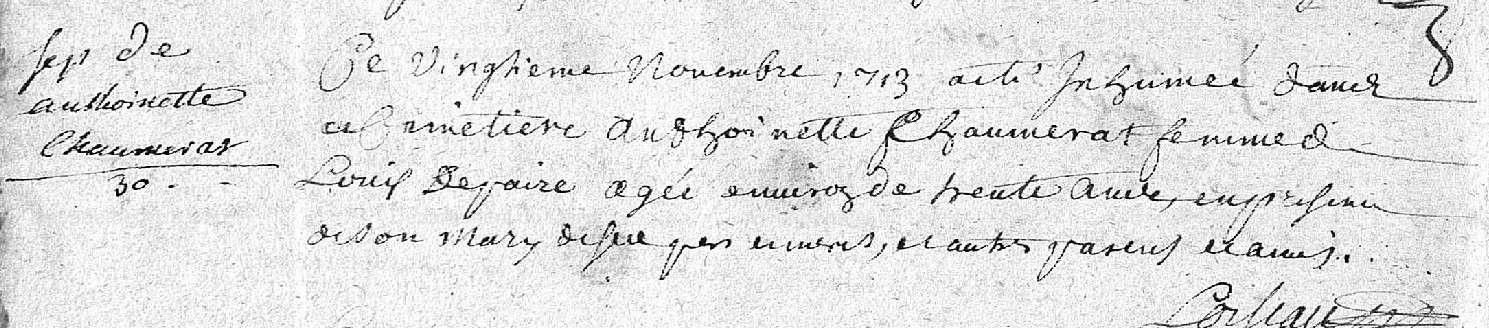 sep de
anthoinette
Chaumerat
30
Ce vingtieme Novembre 1713 a eté Inhumeé dans
ce Cimetiere Anthoinette Chaumerat femme de
Louis Depaire agée environ de trente ans, en presence
de son mary de ses pere et mere, et autres parens et amis.